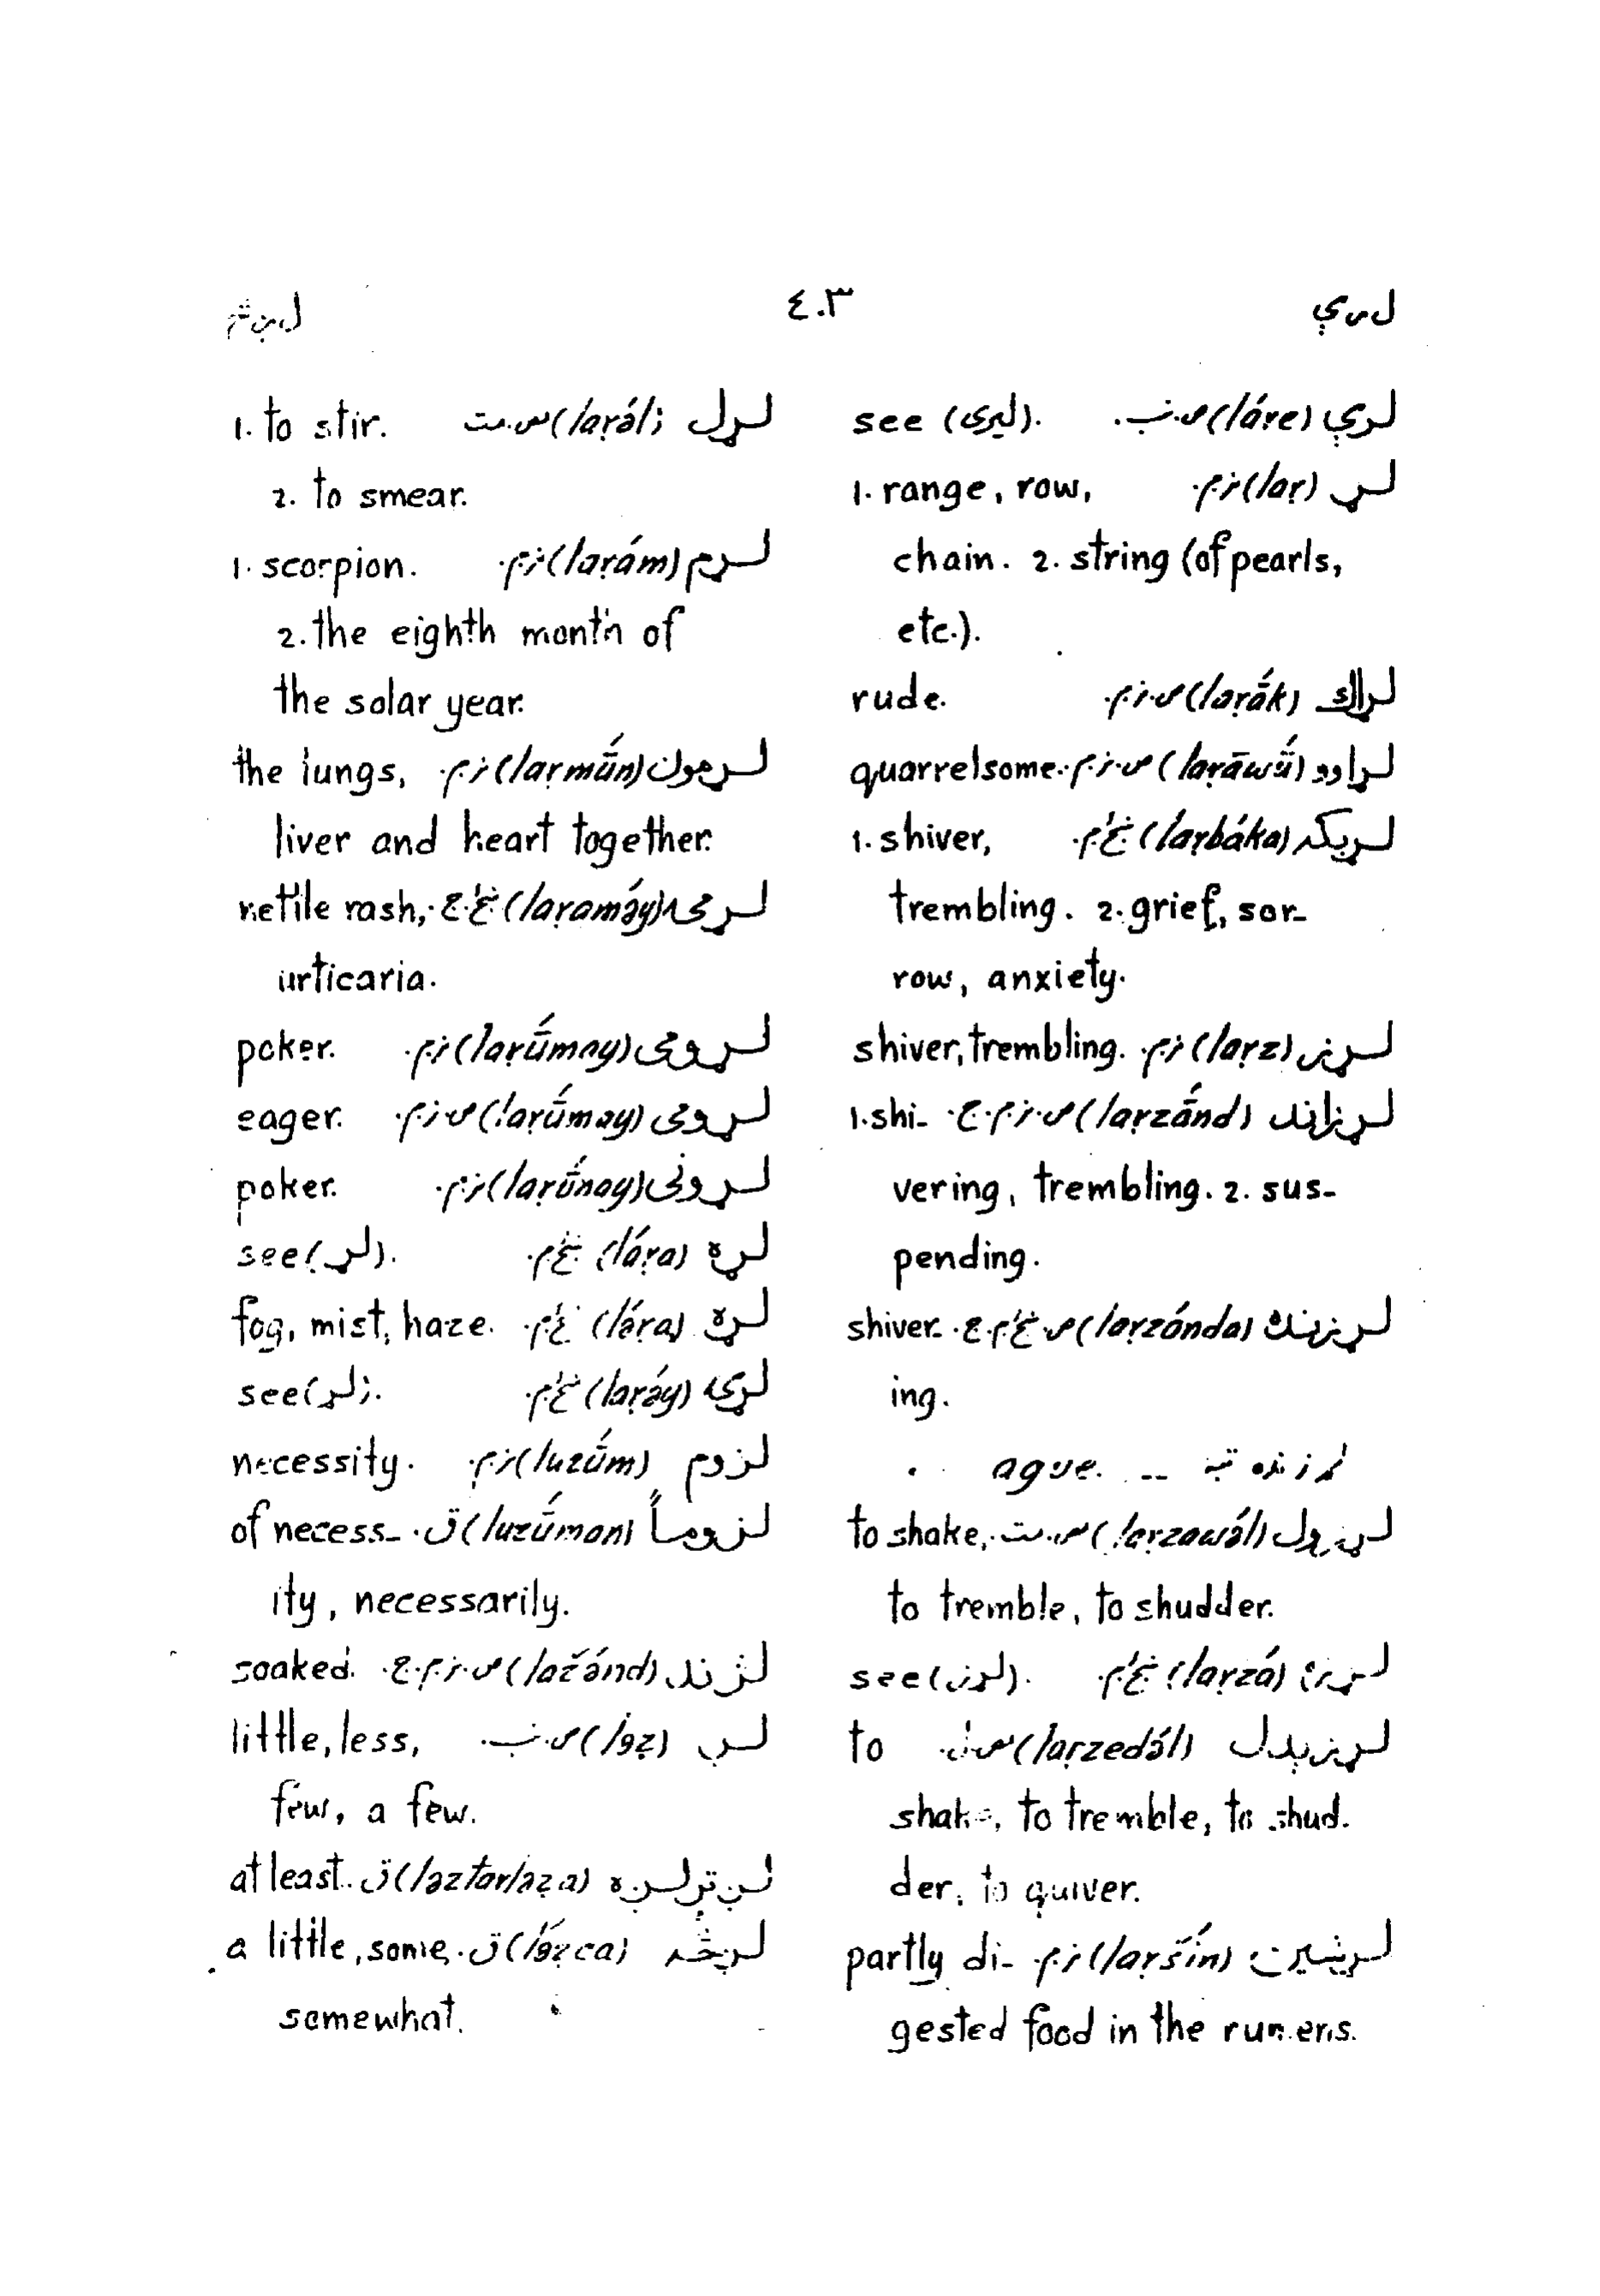 ل ر ي ٤٠٣
لري (láre) ص.ب. see (لیری).
لړ (laṛ) ن.م. 1. range, row,
chain. 2. string (of pearls,
etc.).
لړاک (laṛā́k) ص.ن.م. rude.
لړاوو (laṛāwū́) ص.ن.م. quarrelsome.
لړبکه (laṛbáka) 1. shiver,
trembling. 2. grief, sor-
row, anxiety.
لړز (laṛz) ن.م. shiver, trembling.
لړزاند (laṛzā́nd) ص.ن.م.ج. 1. shi-
vering, trembling. 2. sus-
pending.
لړزنده (laṛzónda) shiver-
ing.
لړزنده تبه -- ague.
لړزول (laṛzawə́l) to shake,
to tremble, to shudder.
(laṛzá) see (لړز).
لړزېدل (laṛzedə́l) to
shake, to tremble, to shud-
der, to quiver.
لړشین (laṛšín) ن.م. partly di-
gested food in the rumens.
لړل (laṛə́l) 1. to stir.
2. to smear.
لړم (laṛám) ن.م. 1. scorpion.
2. the eighth month of
the solar year.
لړمون (laṛmū́n) ن.م. the lungs,
liver and heart together.
لړمۍ (laṛamə́y) nettle rash,
urticaria.
لړومی (laṛū́may) ن.م. poker.
لړومی (laṛū́may) ص.ن.م. eager.
لړونی (laṛū́nay) ن.م. poker.
لړه (láṛa) see (لړ).
لړه (lə́ṛa) fog, mist, haze.
لړۍ (laṛə́y) see (لړ).
لزوم (luzū́m) ن.م. necessity.
لزوماً (luzū́man) ق. of necess-
ity, necessarily.
لژند (lažánd) ص.ن.م.ج. soaked.
لږ (ləẓ) ص.ب. little, less,
few, a few.
لږ تر لږه (ləẓtarləẓa) ق. at least.
لږڅه (lə́ẓca) ق. a little, some,
somewhat.